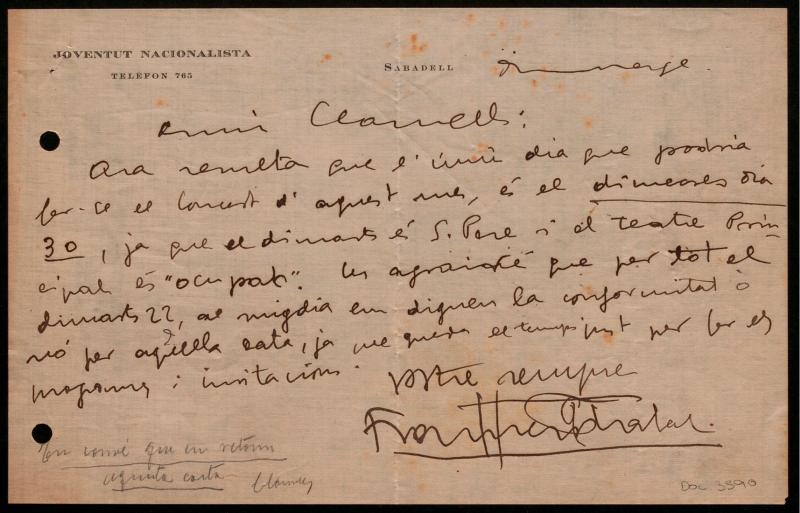 JOVENTUT NACIONALISTA
TELÈFON 765
SABADELL diumenge.
Amic Clomells:
Ara resulta que l'únic dia que podria
fer-se el Concert d'aquest mes, és el dimecres dia
30, ja que el dimarts és S. Pere i el teatre Prin-
cipal és "ocupat". Us agrairé que per tot el
dimarts 22, al migdia em digueu la conformitat o
nó per aquella data, ja que queda el temps just per fer els
programes i invitacions.
Vostre sempre
Em convé que em retorni
aquesta carta
Doc 3390